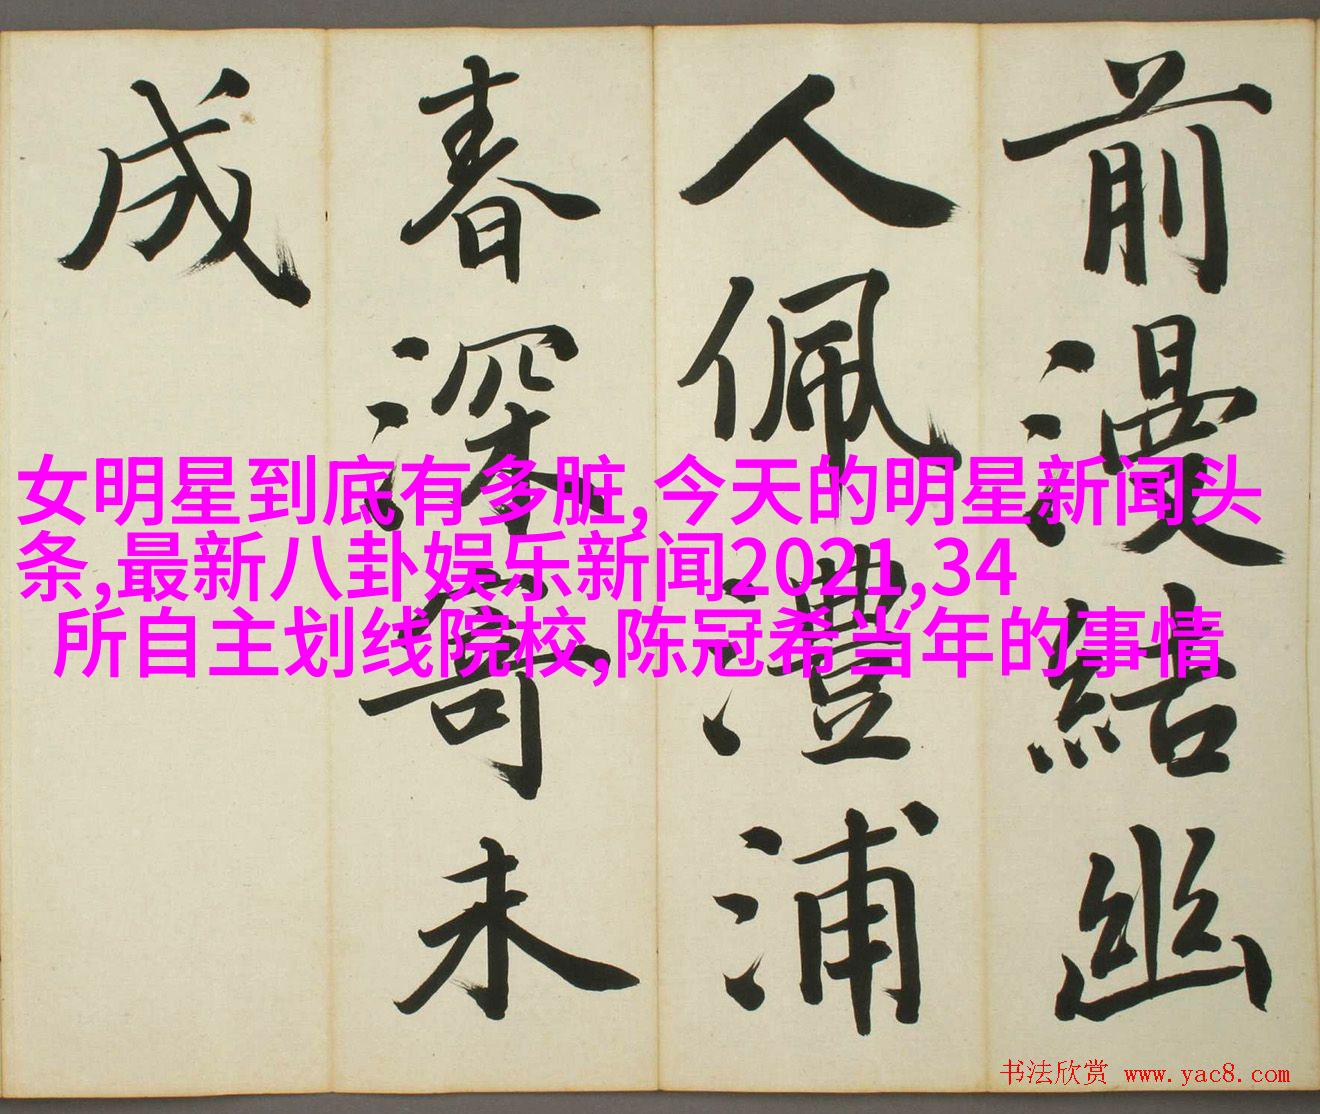 前漫結幽
人佩灃浦
春深寄未
成
女明星到底有多脏,今天的明星新闻头
条,最新八卦娱乐新闻2021,34
所自主划线院校,陈冠希当年的事情
书法欣赏 www.yac8.com